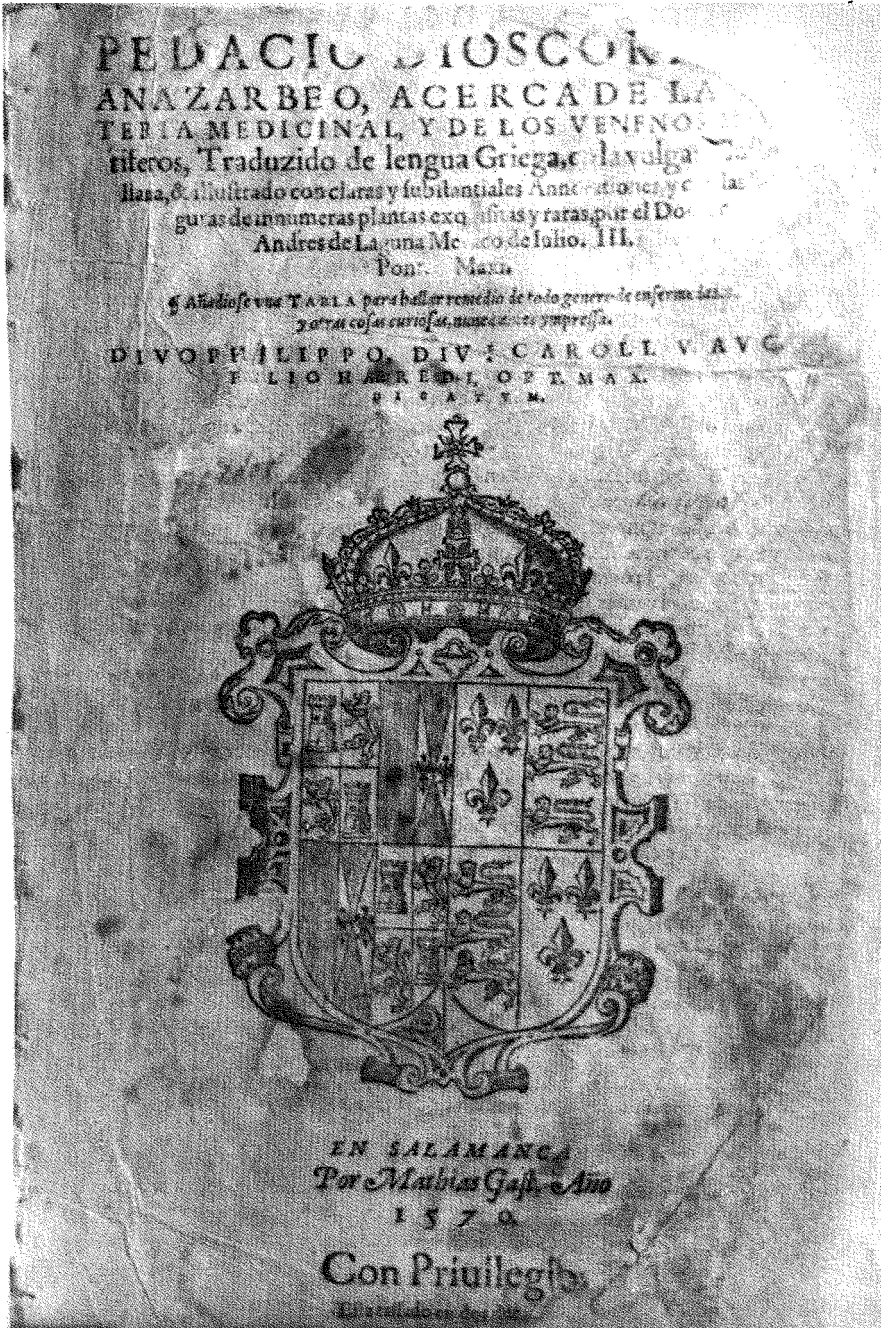 PEDACIO DIOSCOR
ANAZARBEO, ACERCA DE LA
TERIA MEDICINAL, Y DE LOS VENENOS
tiferos, Traduzido de lengua Griega, en la vulgar
llana, & illustrado con claras y substantiales Annotationes, y con las
guras de innumeras plantas exquisitas y raras, por el Doctor
Andres de Laguna Medico de Iulio. III.
Pont. Maxi.
¶ Añadiose vna TABLA para hallar remedio de todo genero de enfermedades,
y otras cosas curiosas, nunca antes ympressa.
DIVO PHILIPPO, DIVI CAROLI V AVG
FILIO HAEREDI, OPT. MAX.
DICATVM.
EN SALAMANCA
Por Mathias Gast. Año
1570.
Con Priuilegio.